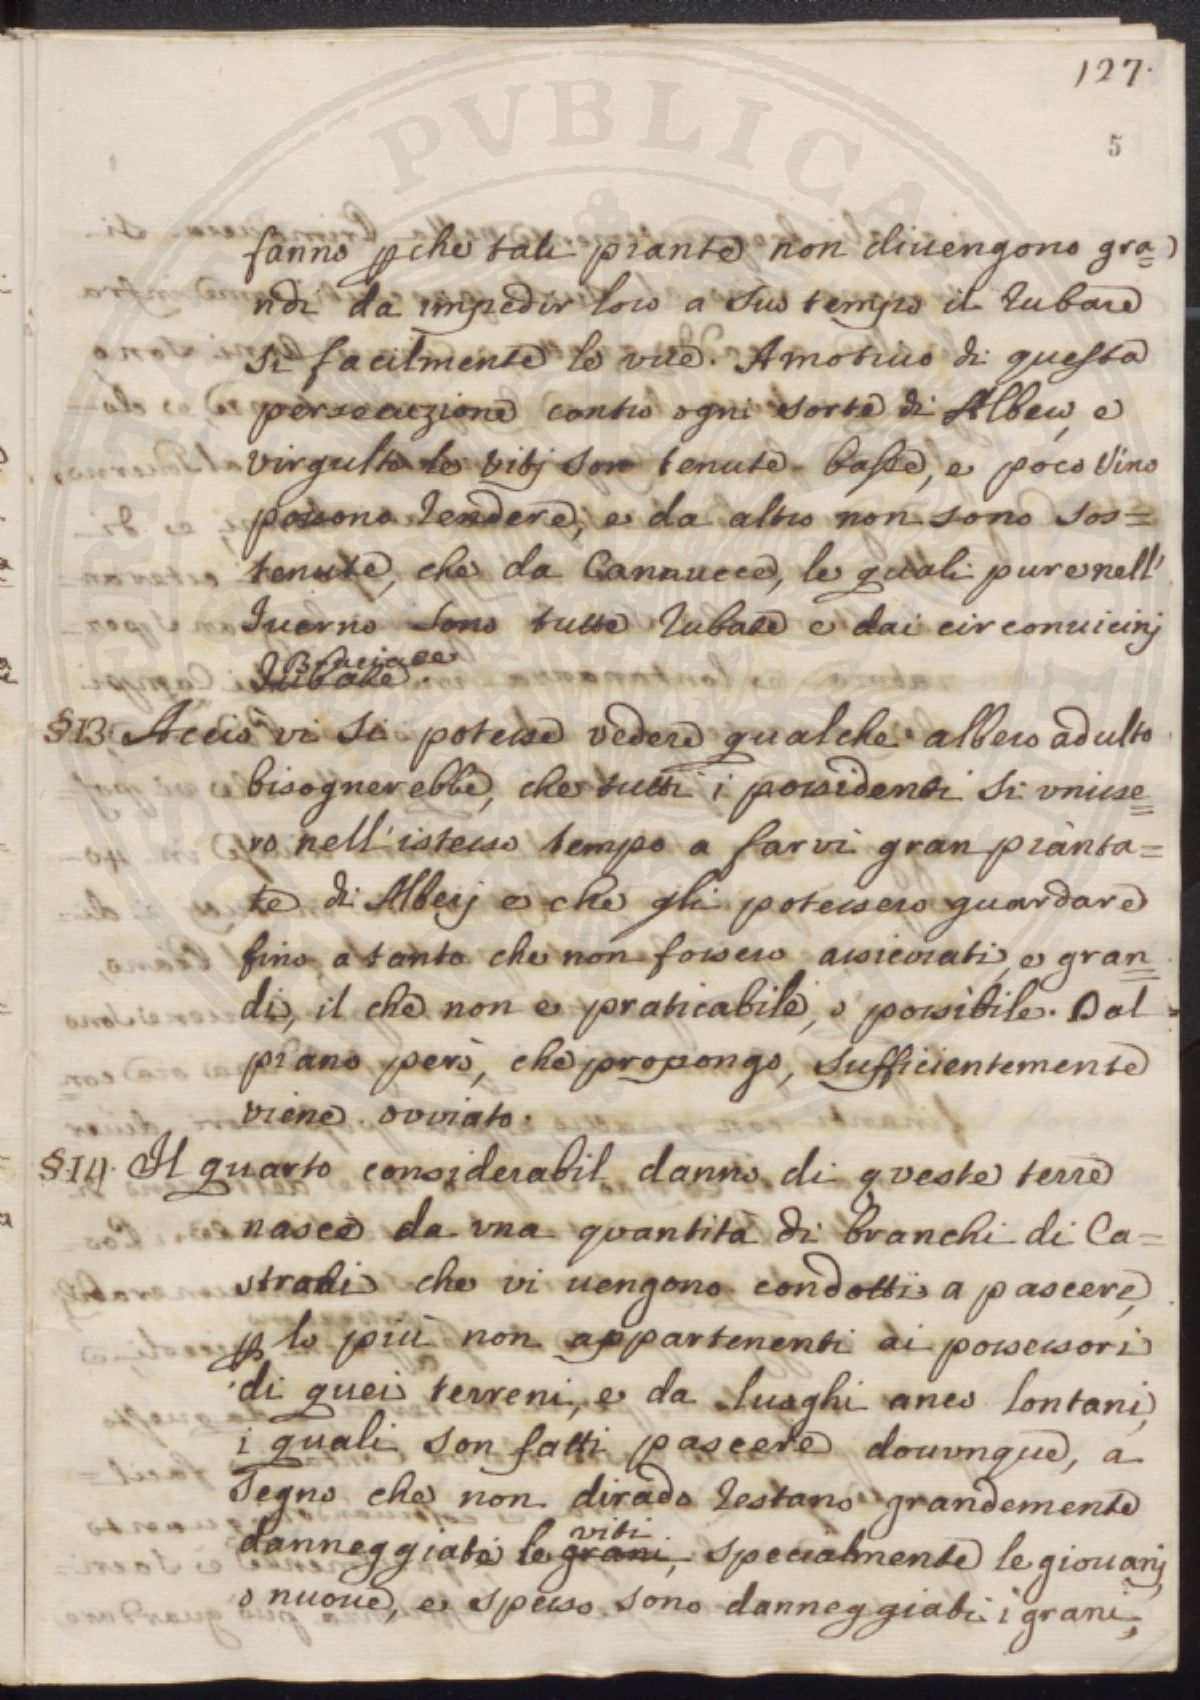 127.
5
fanno pche tali piante non diuengono gra=
ndi da impedir loro a suo tempo il rubare
si facilmente le viti. Amotiuo di questa
persecuzione contro ogni sorte di Alberi, e
virgulto le vitj son tenute basse, e poco Vino
possono rendere, e da altro non sono sos=
tenute, che da Cannucce, le quali pure nell'
Inverno sono tutte rubate e dai circonuicinj
Bruciate
rubate.
§13. Acciò vi si potesse vedere qualche albero adulto
bisognerebbe, che tutti i possidenti si vnisse=
ro nell'istesso tempo a farvi gran pianta=
te di Alberj e che gli potessero guardare
fino a tanto che non fossero assicurati, e gran=
di, il che non e praticabile, o possibile. Dal
piano però, che propongo, sufficientemente
viene ovviato.
§14. Il quarto considerabil danno di queste terre
nasce da vna quantità di branchi di Ca=
strati che vi uengono condotti a pascere,
p lo più non appartenenti ai possessori
di quei terreni, e da luoghi anco lontani,
i quali son fatti pascere douunque, a
segno che non dirado restano grandemente
viti
danneggiate le grani, specialmente le giouanj,
o nuoue, e spesso sono danneggiati i grani,
PVBLICA